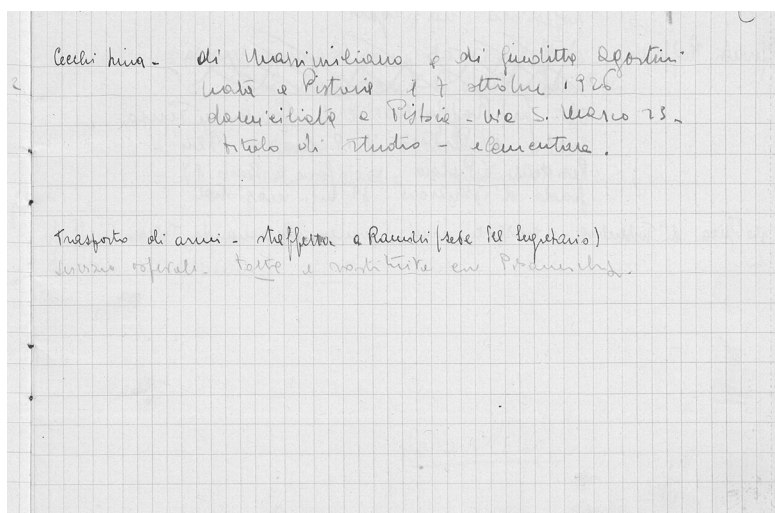 Cecchi Lina - di Massimiliano e di Giuditta Agostini
nata a Pistoia il 7 ottobre 1926
domiciliata a Pistoia - via S. Marco 23 -
titolo di studio - elementare.
Trasporto di armi - staffetta a Ramini (sede del Segretario)
servizio ospedali - tolta e sostituita con